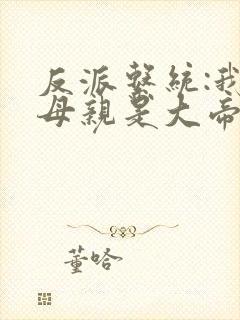 反派系統:我
母親是大帝
董哈